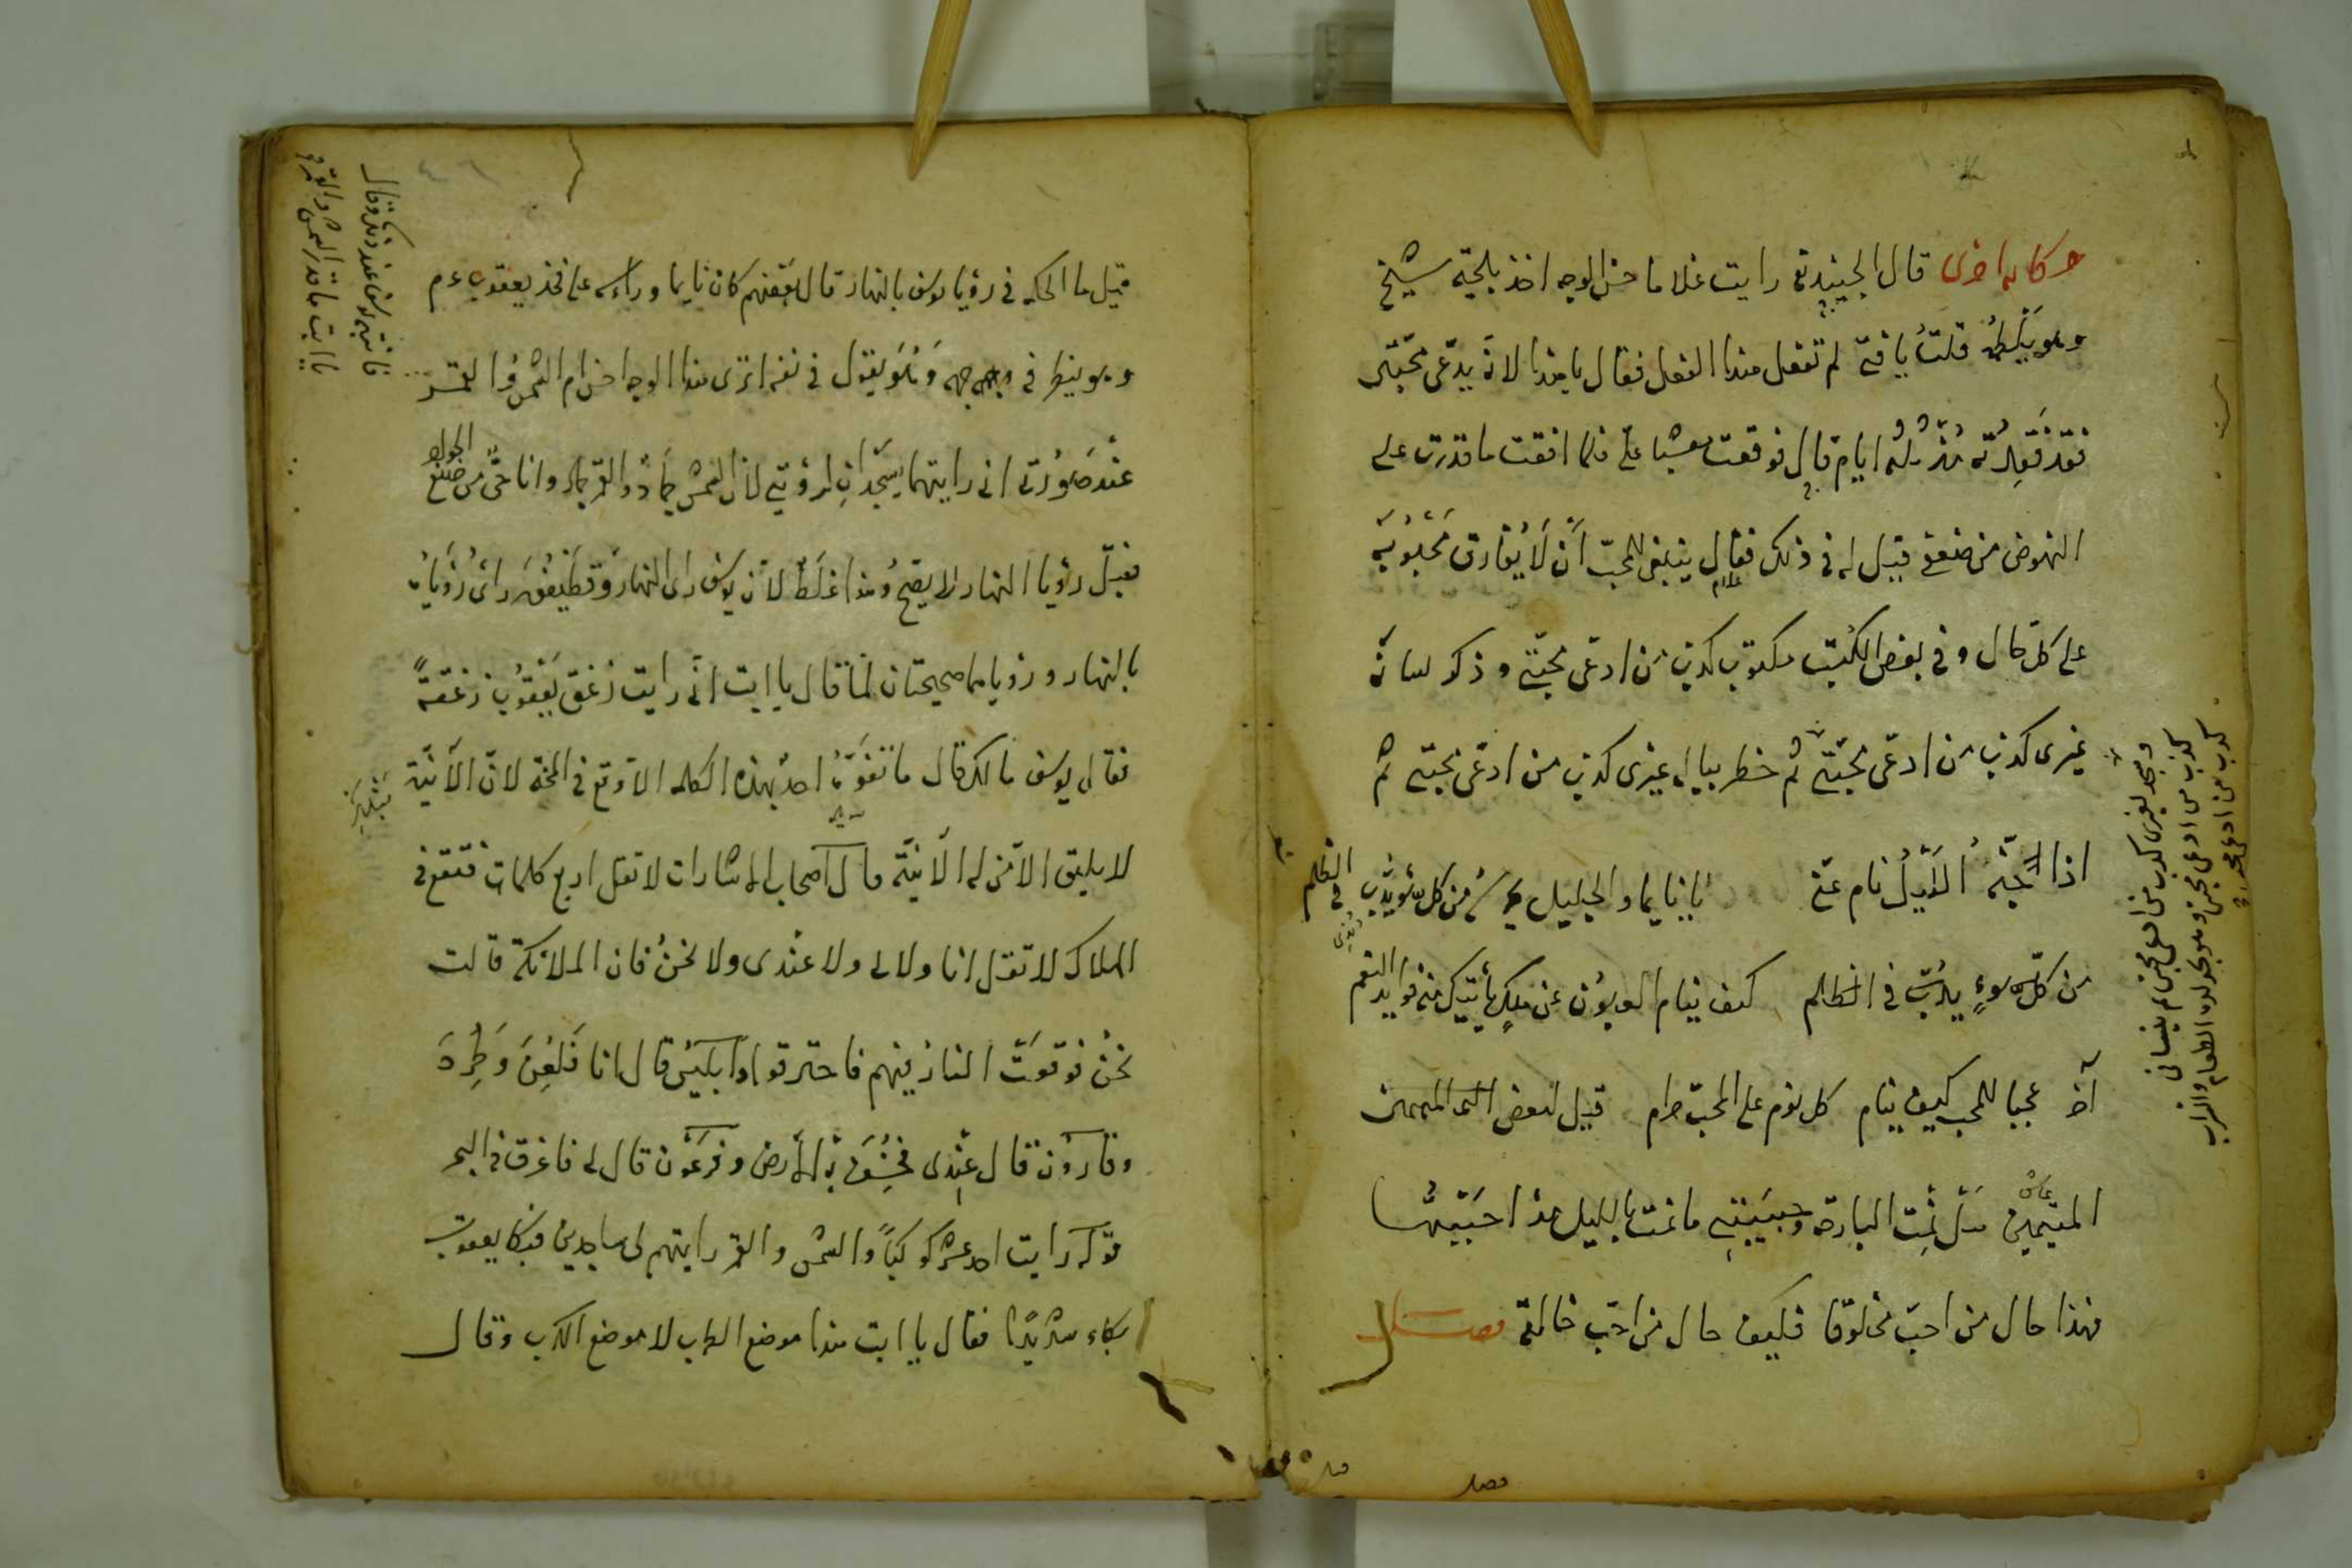 حكاية اخرى قال الجنيد رأيت غلاما حسن الوجه اخذ بلحية شيخ
وهو يلطمه قلت يا فتى لم تفعل هذا الفعل فقال يا هذا لانه يدعى محبتى
فقد فقدته منذ ثلثه ايام قال فوقعت مغشيا على فلما افقت ما قدرت على
النهوض من ضعفى قيل له فى ذلك فقال ينبغى للمحب ان لا يفارق محبوبه
على كل حال وفى بعض الكتب مكتوب كذب من ادعى محبتى وذكر لسانه
غيرى كذب من ادعى محبتى ثم خطر بباله غيرى كذب من ادعى محبتى ثم
اذا جنه الليل نام عنى يا نايما والجليل من كل سوء يدب فى الظلم
من كل سوء يدب فى الظلم كيف ينام العيون عن ملك يأتيك منه فوايد النعم
آخر عجبا للمحب كيف ينام كل نوم على المحب حرام قيل لبعض المتيمين
المتيمين هل نمت البارحة وحبيبتى ما نمت بالليل مذ احببتها
فهذا حال من احب مخلوقا فكيف حال من احب خالقه فصل
ويجد لغيرى كذب من ادعى محبتى ثم ينسانى
كذب من ادعى محبتى وهو يجد لذة الطعام والشراب
كذب من ادعى محبتى
فصل
قيل ما الحكمة فى رؤيا يوسف بالنهار قال بعضهم كان نايما وراسه على فخذ يعقوب عم
وهو ينظر فى وجهه وهو يقول فى نفسه اترى هذا الوجه احسن ام الشمس والقمر
عند صورتى انى رايتهما يسجدان لرؤيتى لان الشمس جماد والقمر جماد وانا حى من صنع
فقيل رؤيا النهار لا يصح وهذا غلط لان يوسف راى بالنهار وقطيفر راى رؤياه
بالنهار ورؤياهما صحيحتان لما قال يا ابت انى رايت زعق يعقوب زعقة
فقال يوسف مالك قال ما تفوه احد بهذه الكلمه الا وقع فى المحنة لان الانية
لا يليق الا من له الانية قال اصحاب الاشارات لا تقل اربع كلمات فتقع فى
الهلاك لا تقل انا ولا لى ولا عندى ولا نحن فان الملائكة قالت
نحن فوقعت النار فيهم فاحترقوا وابليس قال انا فلعن وطرد
وقارون قال عندى فخسف به الارض وفرعون قال لى فاغرق فى البحر
قوله رايت احد عشر كوكبا والشمس والقمر رايتهم لى ساجدين فبكا يعقوب
بكاء شديدا فقال يا ابت هذا موضع الطرب لا موضع الكرب وقال
فانتبه يوسف عند ذلك وقال